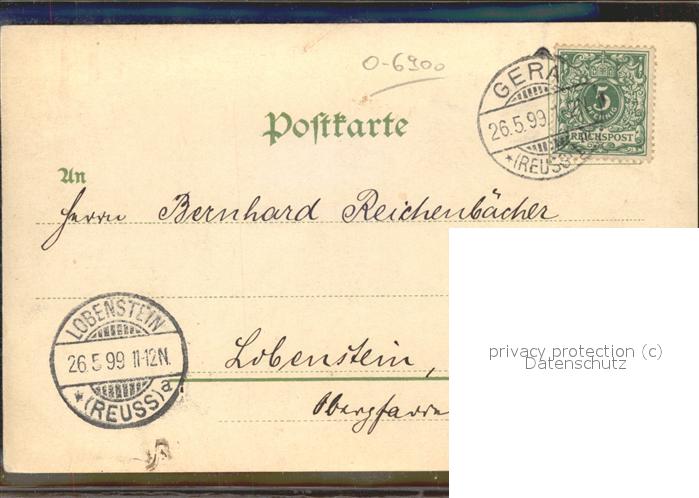 O-6900
Postkarte
GERA
26.5.99
*(REUSS
5
REICHSPOST
An
Herrn Bernhard Reichenbächer
LOBENSTEIN
26.5.99 11-12N.
*(REUSS)a
Lobenstein,
privacy protection (c)
Datenschutz